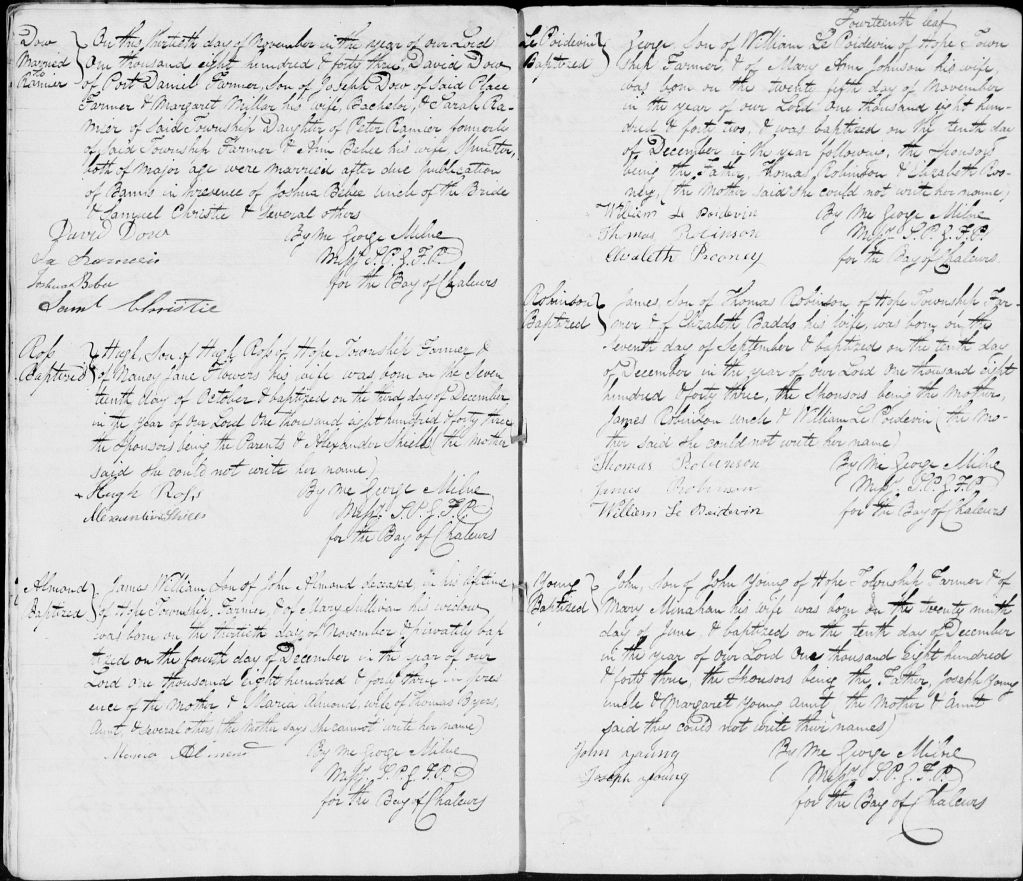 Dow
Married
to
Ramier
On this thirtieth day of November in the year of our Lord
One thousand eight hundred & forty three, David Dow
of Port Daniel Farmer, Son of Joseph Dow of said Place
Farmer & Margaret Millar his wife, Bachelor, & Sarah Ra-
mier of said Township Daughter of Peter Ramier formerly
of said Township Farmer & Ann Bebee his wife, Spinster,
both of major age were married after due publication
of Banns in presence of Joshua Bebee uncle of the Bride
& Samuel Christie & several others
David Dow
By Me George Milne
Sa Rameir
Missy. S.P.G.F.P.
Joshua Bebee
for the Bay of Chaleurs
Saml Christie
Ross
Baptized
Hugh, Son of Hugh Ross of Hope Township Farmer &
of Nancy Jane Flowers his wife was born on the seven
teenth day of October & baptized on the third day of December
in the year of Our Lord One thousand eight hundred & forty three
the Sponsors being the Parents & Alexander Shiels (the mother
said she could not write her name)
Hugh Ross
By Me George Milne
Alexander Shiels
Missy. S.P.G.F.P.
for the Bay of Chaleurs
Almond
Baptized
James William, Son of John Almond deceased, in his lifetime
of Hope Township, Farmer & of Mary Sullivan his widow
was born on the thirtieth day of November & privately bap
tized on the fourth day of December in the year of our
Lord One thousand eight hundred & forty three in pres
ence of the Mother & Maria Almond, wife of Thomas Byers,
Aunt, & several others (the mother says she cannot write her name)
Maria Almond
By Me George Milne
Missy. S.P.G.F.P.
for the Bay of Chaleurs
Fourteenth leaf
Le Poidevin
Baptized
George, Son of William Le Poidevin of Hope Town
ship Farmer, & of Mary Ann Johnson his wife,
was born on the twenty fifth day of November
in the year of our Lord One thousand eight hun-
dred & forty two, & was baptized on the tenth day
of December in the year following, the Sponsors
being the Father, Thomas Robinson & Elizabeth Roo-
ney, (the Mother said she could not write her name)
William Le Poidevin
By Me George Milne
Thomas Robinson
Missy. S.P.G.F.P.
Elizabeth Rooney
for the Bay of Chaleurs
Robinson
Baptized
James, Son of Thomas Robinson of Hope Township Far-
mer & of Elizabeth Badds his wife, was born on the
seventh day of September & baptized on the tenth day
of December in the year of our Lord One thousand eight
hundred & forty three, the Sponsors being the Mother,
James Robinson uncle & William Le Poidevin (the mo-
ther said she could not write her name)
Thomas Robinson
By Me George Milne
James Robinson
Missy. S.P.G.F.P.
William Le Poidevin
for the Bay of Chaleurs
Young
Baptized
John, Son of John Young of Hope Township Farmer & of
Mary Minahan his wife was born on the twenty ninth
day of June, & baptized on the tenth day of December
in the year of our Lord One thousand eight hundred
& forty three, the Sponsors being the Father, Joseph Young
uncle & Margaret Young aunt (the Mother & Aunt
said they could not write their names)
John young
By Me George Milne
Joseph Young
Missy. S.P.G.F.P.
for the Bay of Chaleurs